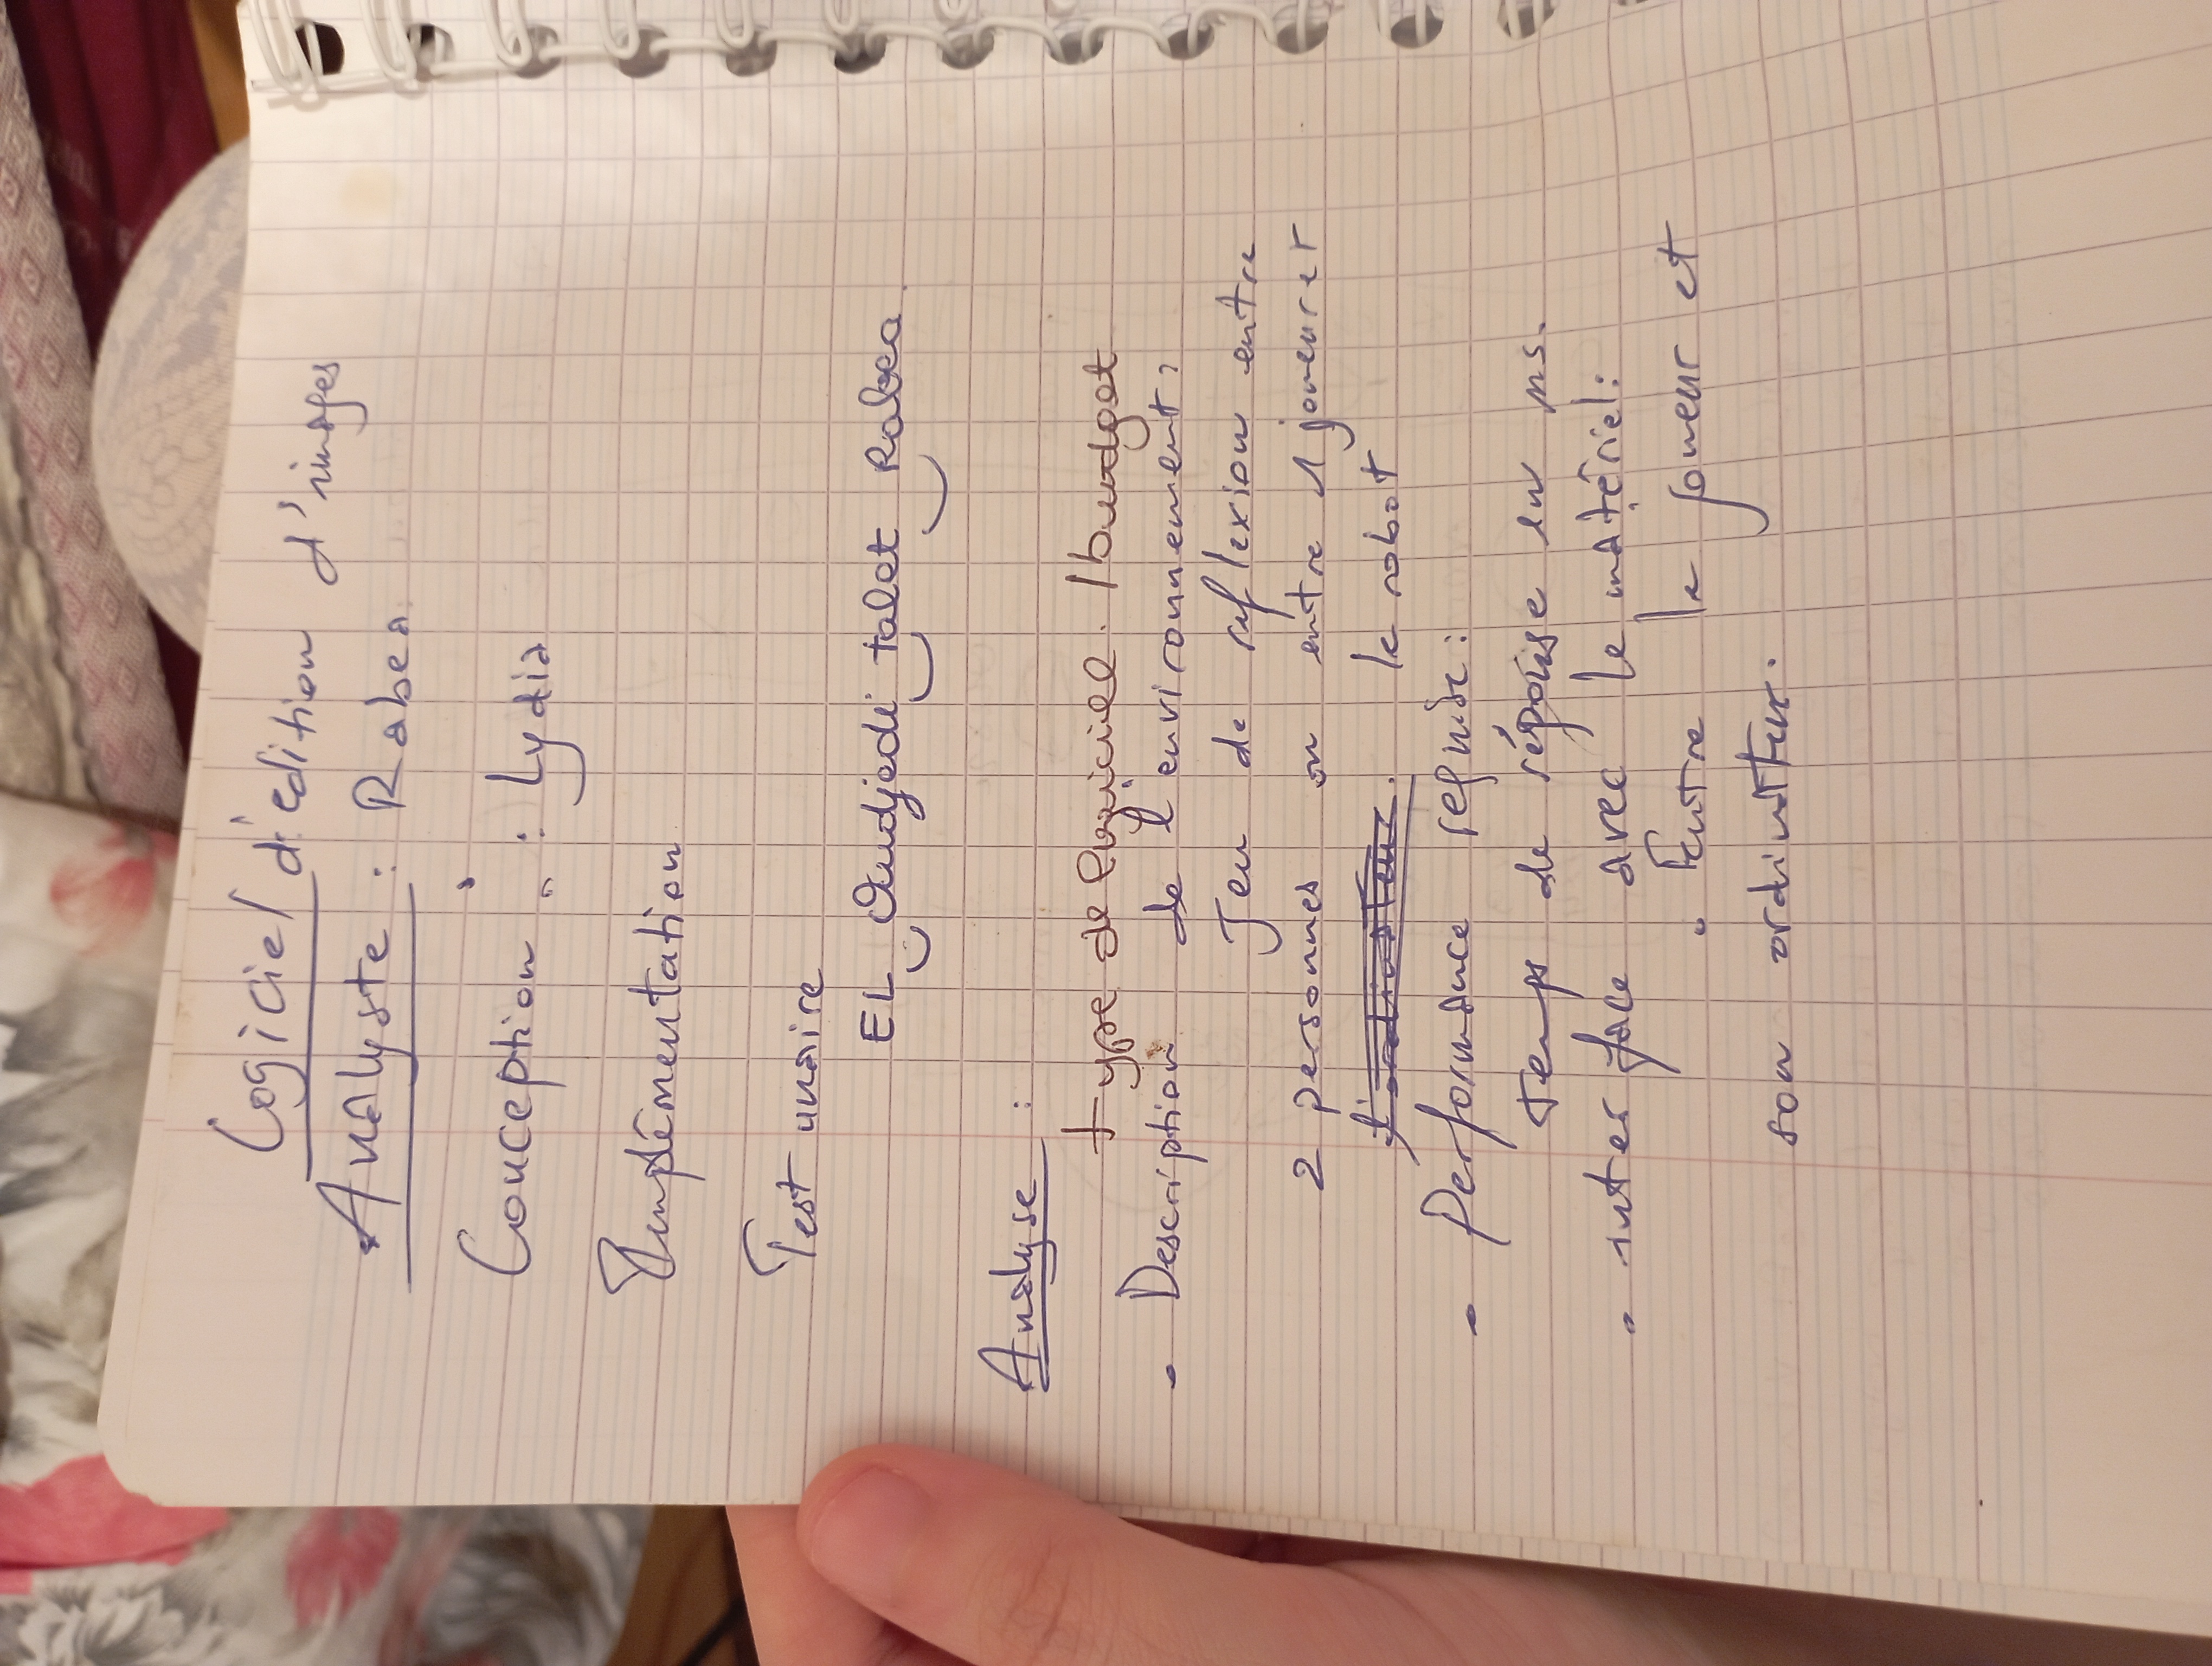 Logiciel d'édition d'images
Analyste : Rabea
Conception : Lydia
Implémentation
Test unaire
EL Oudjedi talet Rabea.
Analyse :
type de logiciel.
• Description de l'environnement :
Jeu de réflexion entre
2 personnes ou entre 1 joueur et
le robot
• Performance requise :
temps de réponse en ms.
• interface avec le matériel :
• Entre le joueur et
son ordinateur.